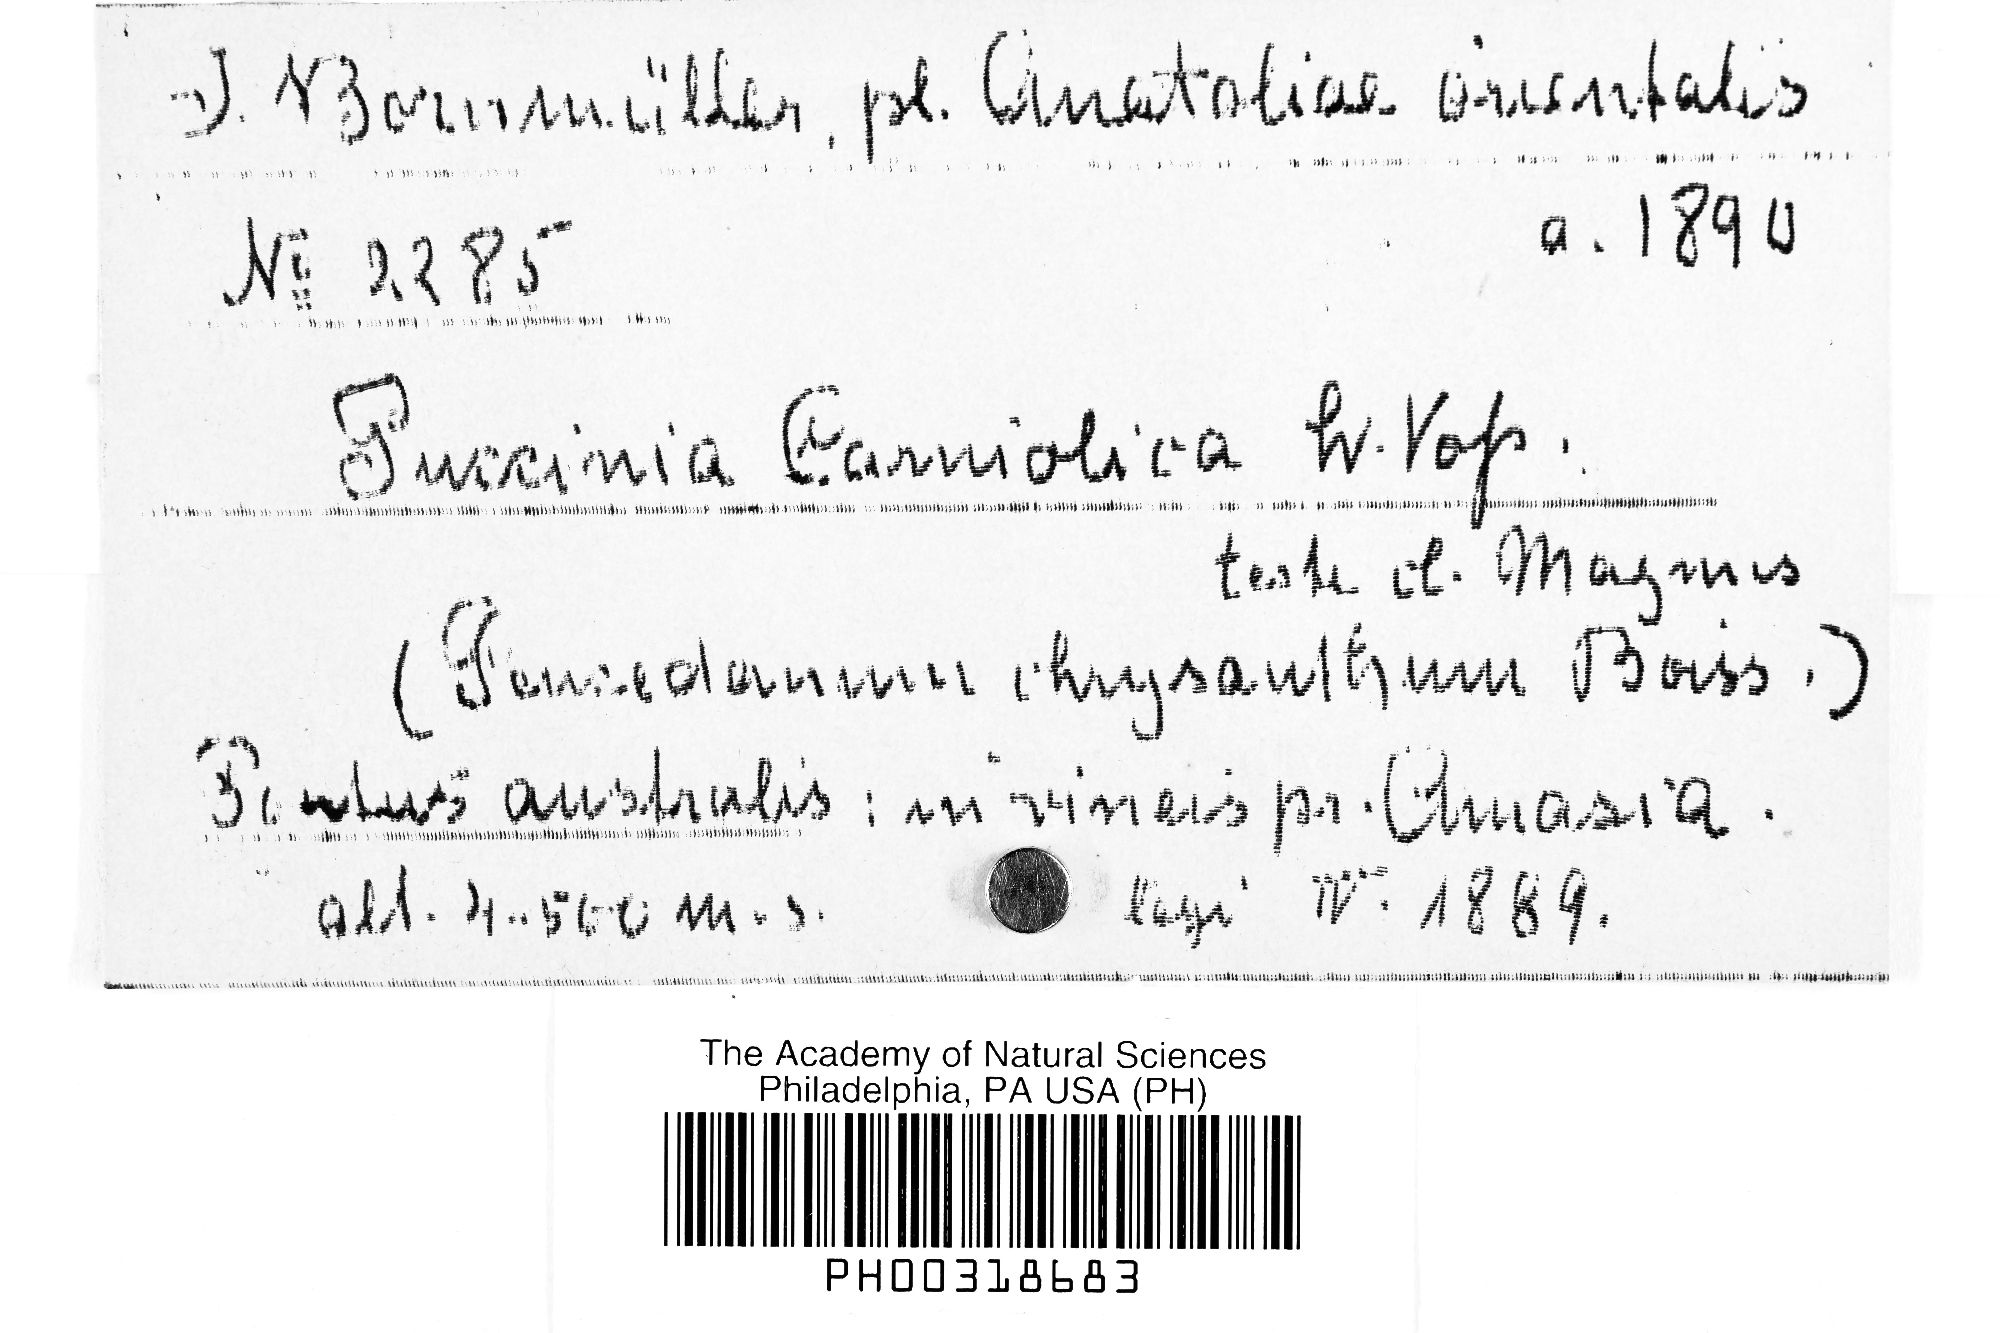 J. Bornmüller, pl. Anatoliae orientalis
a. 1890
No 2285
Puccinia Carniolica W. Voß.
teste cl. Magnus
(Peucedanum chrysanthum Boiss.)
Pontus australis: in vineis pr. Amasia.
alt. 4-500 m. s. legi IV. 1889.
The Academy of Natural Sciences
Philadelphia, PA USA (PH)
PH00318683